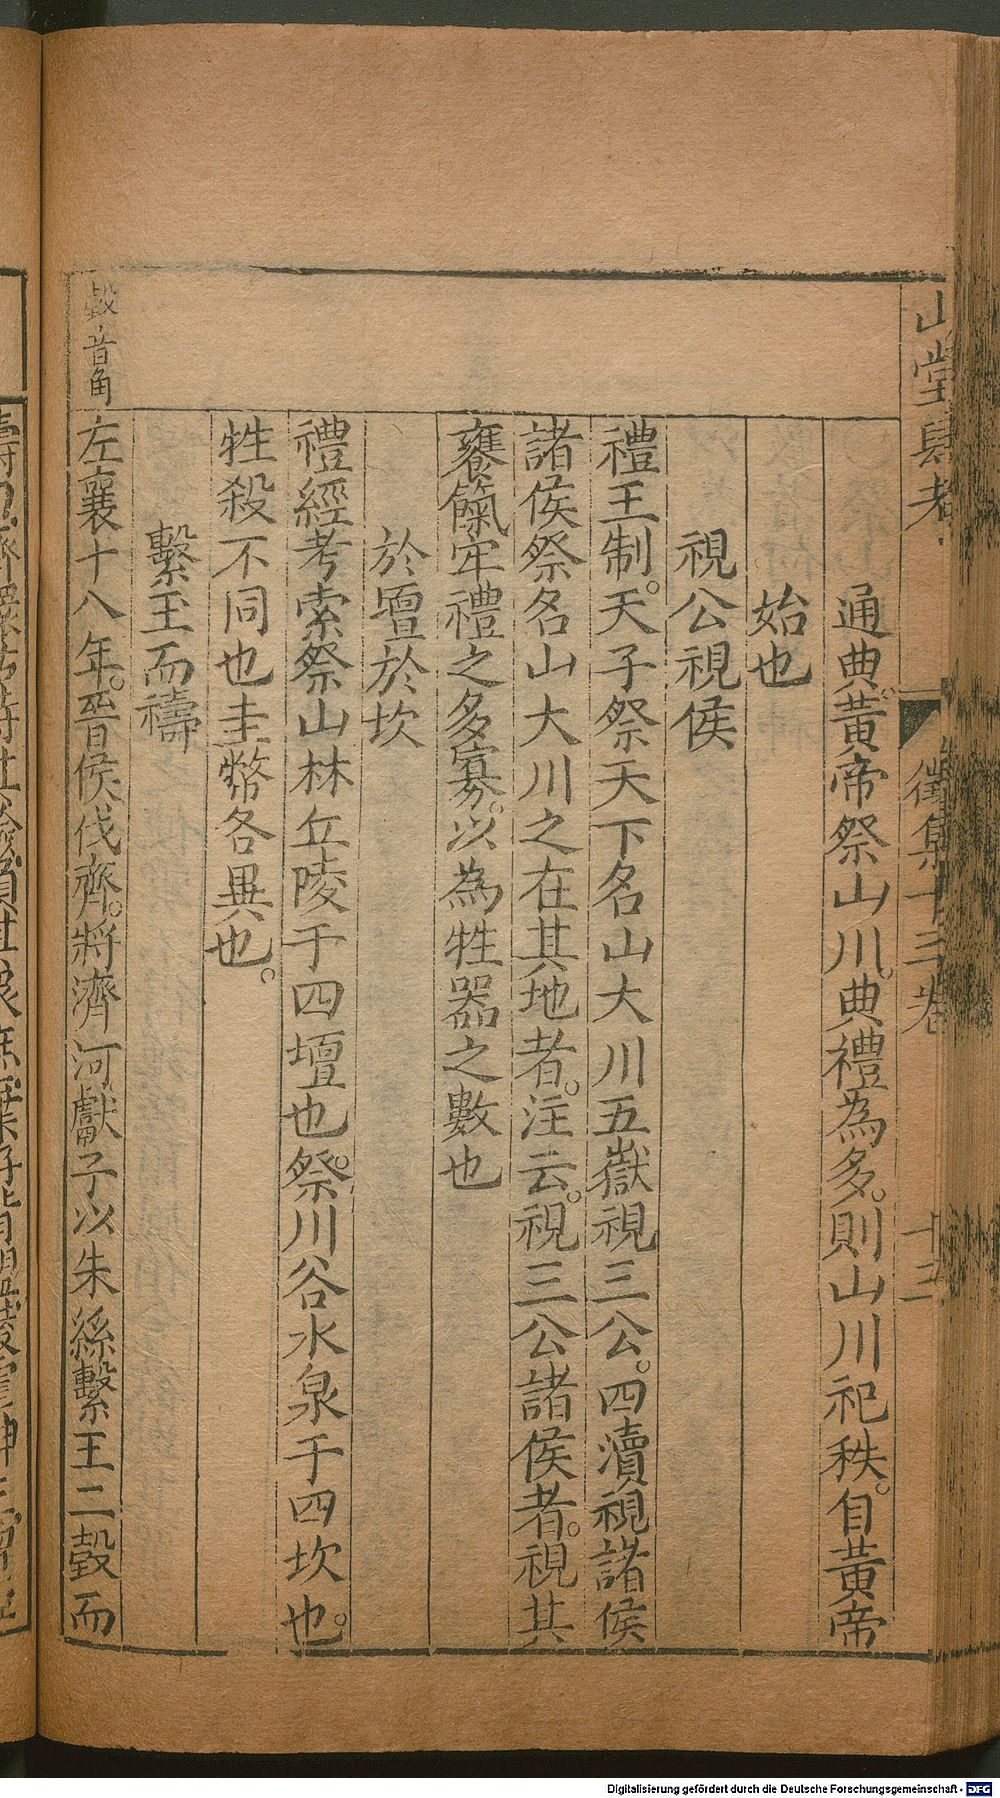 山堂肆考
徵集十三卷
十三
通典。黃帝祭山川。典禮為多。則山川祀秩。自黃帝
始也
視公視侯
禮王制。天子祭天下名山大川五嶽視三公。四瀆視諸侯
諸侯祭名山大川之在其地者。注云。視三公諸侯者。視其
饔餼牢禮之多寡。以為牲器之數也
於壇於坎
禮經考索祭山林丘陵于四壇也。祭川谷水泉于四坎也。
牲殺不同也圭幣各異也。
繫玉而禱
瑴音角
左襄十八年。晉侯伐齊。將濟河獻子以朱絲繫玉二瑴而
Digitalisierung gefördert durch die Deutsche Forschungsgemeinschaft - DFG